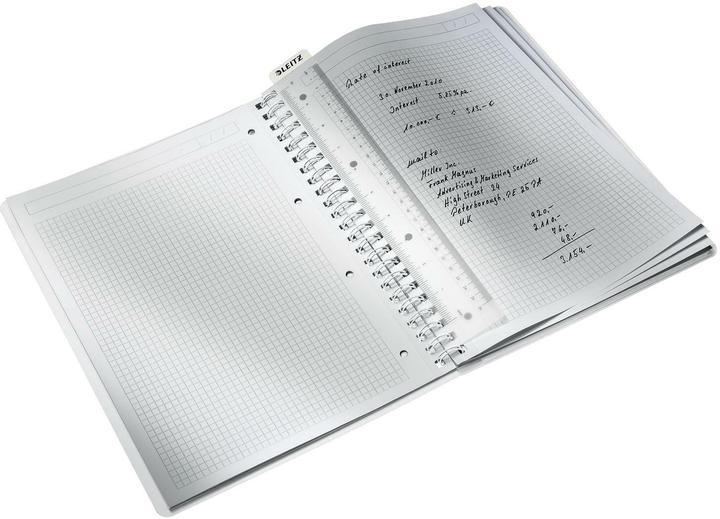 LEITZ
Rate of interest
30. November 2010
Interest 5,15% pa.
10.000,- € ÷ 313,- €
mail to:
Miller Inc.
Frank Magnus
Advertising & Marketing Services
High Street 24
Peterborough, PE 25 7A
UK
920,-
2.110,-
76,-
48,-
3.154,-